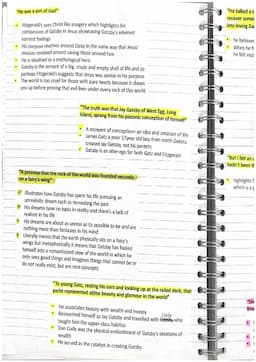 "He was a son of God"
Fitzgerald's uses Christ like imagery which highlights his
comparison of Gatsby in Jesus showcasing Gatsby's inherent
earnest feelings
His purpose revolves around Daisy in the same way that Jesus'
mission revolved around saving those around him.
He is idealised to a mythological hero
Gatsby is the servant of a big, crude and empty shell of life and so
perhaps Fitzgerald's suggests that Jesus was similar in his purpose
The world is too cruel for those with pure hearts because it chews
you up before proving that evil lives under every rock of this world
"The truth was that Jay Gatsby of West Egg, Long
Island, sprang from his platonic conception of himself"
A moment of conception= an idea and creation of life
James Gatz a poor 17year old boy from north Dakota
created Jay Gatsby, not his parents
Gatsby is an alter-ego for both Gatz and Fitzgerald
"A promise that the rock of the world was founded securely
on a fairy's wing"
Illustrates how Gatsby has spent his life pursuing an
unrealistic dream such as recreating the past
His dreams have no basis in reality and there's a lack of
realism in his life
His dreams are about as unreal as its possible to be and are
nothing more than fantasies in his mind
Literally means that the earth physically sits on a fairy's
wings but metaphorically it means that Gatsby has fooled
himself into a romanticised view of the world in which he
only sees good things and imagines things that cannot be or
do not really exist, but are nice concepts
"To young Gatz, resting his oars and looking up at the railed deck, that
yacht represented all the beauty and glamour in the world"
He associates beauty with wealth and money
Reinvented himself as Jay Gatsby and travelled with Cody who
taught him the upper-class habitus
Dan Cody was the physical embodiment of Gatsby's ideations of
wealth
He served as the catalyst in creating Gatsby
"He talked a l
recover some
into loving Da
he believes
when he
he felt inco
"But I felt an
hadn't been
highlights f
which is a